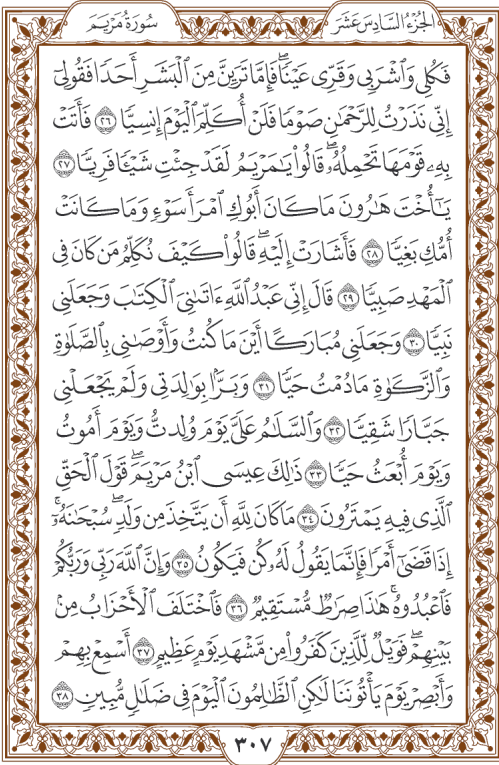 الجُزْءُ السَّادِسَ عَشَرَ
سُورَةُ مَرْيَم
فَكُلِي وَٱشْرَبِي وَقَرِّي عَيْنٗاۖ فَإِمَّا تَرَيِنَّ مِنَ ٱلۡبَشَرِ أَحَدٗا فَقُولِيٓ
إِنِّي نَذَرۡتُ لِلرَّحۡمَٰنِ صَوۡمٗا فَلَنۡ أُكَلِّمَ ٱلۡيَوۡمَ إِنسِيّٗا ٢٦ فَأَتَتۡ
بِهِۦ قَوۡمَهَا تَحۡمِلُهُۥۖ قَالُواْ يَٰمَرۡيَمُ لَقَدۡ جِئۡتِ شَيۡـٔٗا فَرِيّٗا ٢٧
يَٰٓأُخۡتَ هَٰرُونَ مَا كَانَ أَبُوكِ ٱمۡرَأَ سَوۡءٖ وَمَا كَانَتۡ
أُمُّكِ بَغِيّٗا ٢٨ فَأَشَارَتۡ إِلَيۡهِۖ قَالُواْ كَيۡفَ نُكَلِّمُ مَن كَانَ فِي
ٱلۡمَهۡدِ صَبِيّٗا ٢٩ قَالَ إِنِّي عَبۡدُ ٱللَّهِ ءَاتَىٰنِيَ ٱلۡكِتَٰبَ وَجَعَلَنِي
نَبِيّٗا ٣٠ وَجَعَلَنِي مُبَارَكًا أَيۡنَ مَا كُنتُ وَأَوۡصَٰنِي بِٱلصَّلَوٰةِ
وَٱلزَّكَوٰةِ مَا دُمۡتُ حَيّٗا ٣١ وَبَرَّۢا بِوَٰلِدَتِي وَلَمۡ يَجۡعَلۡنِي
جَبَّارٗا شَقِيّٗا ٣٢ وَٱلسَّلَٰمُ عَلَيَّ يَوۡمَ وُلِدتُّ وَيَوۡمَ أَمُوتُ
وَيَوۡمَ أُبۡعَثُ حَيّٗا ٣٣ ذَٰلِكَ عِيسَى ٱبۡنُ مَرۡيَمَۖ قَوۡلَ ٱلۡحَقِّ
ٱلَّذِي فِيهِ يَمۡتَرُونَ ٣٤ مَا كَانَ لِلَّهِ أَن يَتَّخِذَ مِن وَلَدٖۖ سُبۡحَٰنَهُۥٓۚ
إِذَا قَضَىٰٓ أَمۡرٗا فَإِنَّمَا يَقُولُ لَهُۥ كُن فَيَكُونُ ٣٥ وَإِنَّ ٱللَّهَ رَبِّي وَرَبُّكُمۡ
فَٱعۡبُدُوهُۚ هَٰذَا صِرَٰطٞ مُّسۡتَقِيمٞ ٣٦ فَٱخۡتَلَفَ ٱلۡأَحۡزَابُ مِنۢ
بَيۡنِهِمۡۖ فَوَيۡلٞ لِّلَّذِينَ كَفَرُواْ مِن مَّشۡهَدِ يَوۡمٍ عَظِيمٍ ٣٧ أَسۡمِعۡ بِهِمۡ
وَأَبۡصِرۡ يَوۡمَ يَأۡتُونَنَا لَٰكِنِ ٱلظَّٰلِمُونَ ٱلۡيَوۡمَ فِي ضَلَٰلٖ مُّبِينٖ ٣٨
٣٠٧